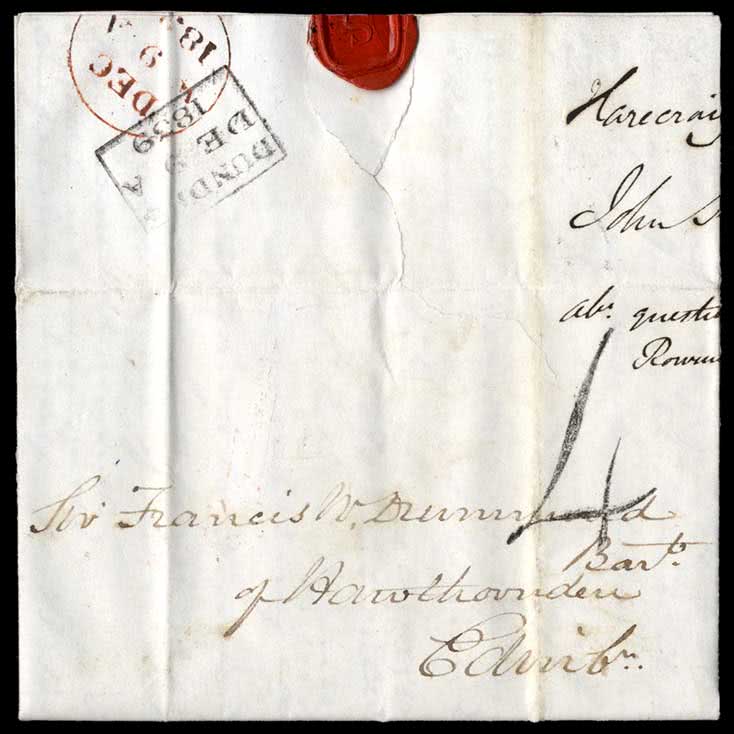 DEC
9
183
DUND
DE 9
1839
A
Harecraig
John S
abt. questi
Sir Francis W. Drummond
4
Bart.
of Hawthornden
Edinbr.